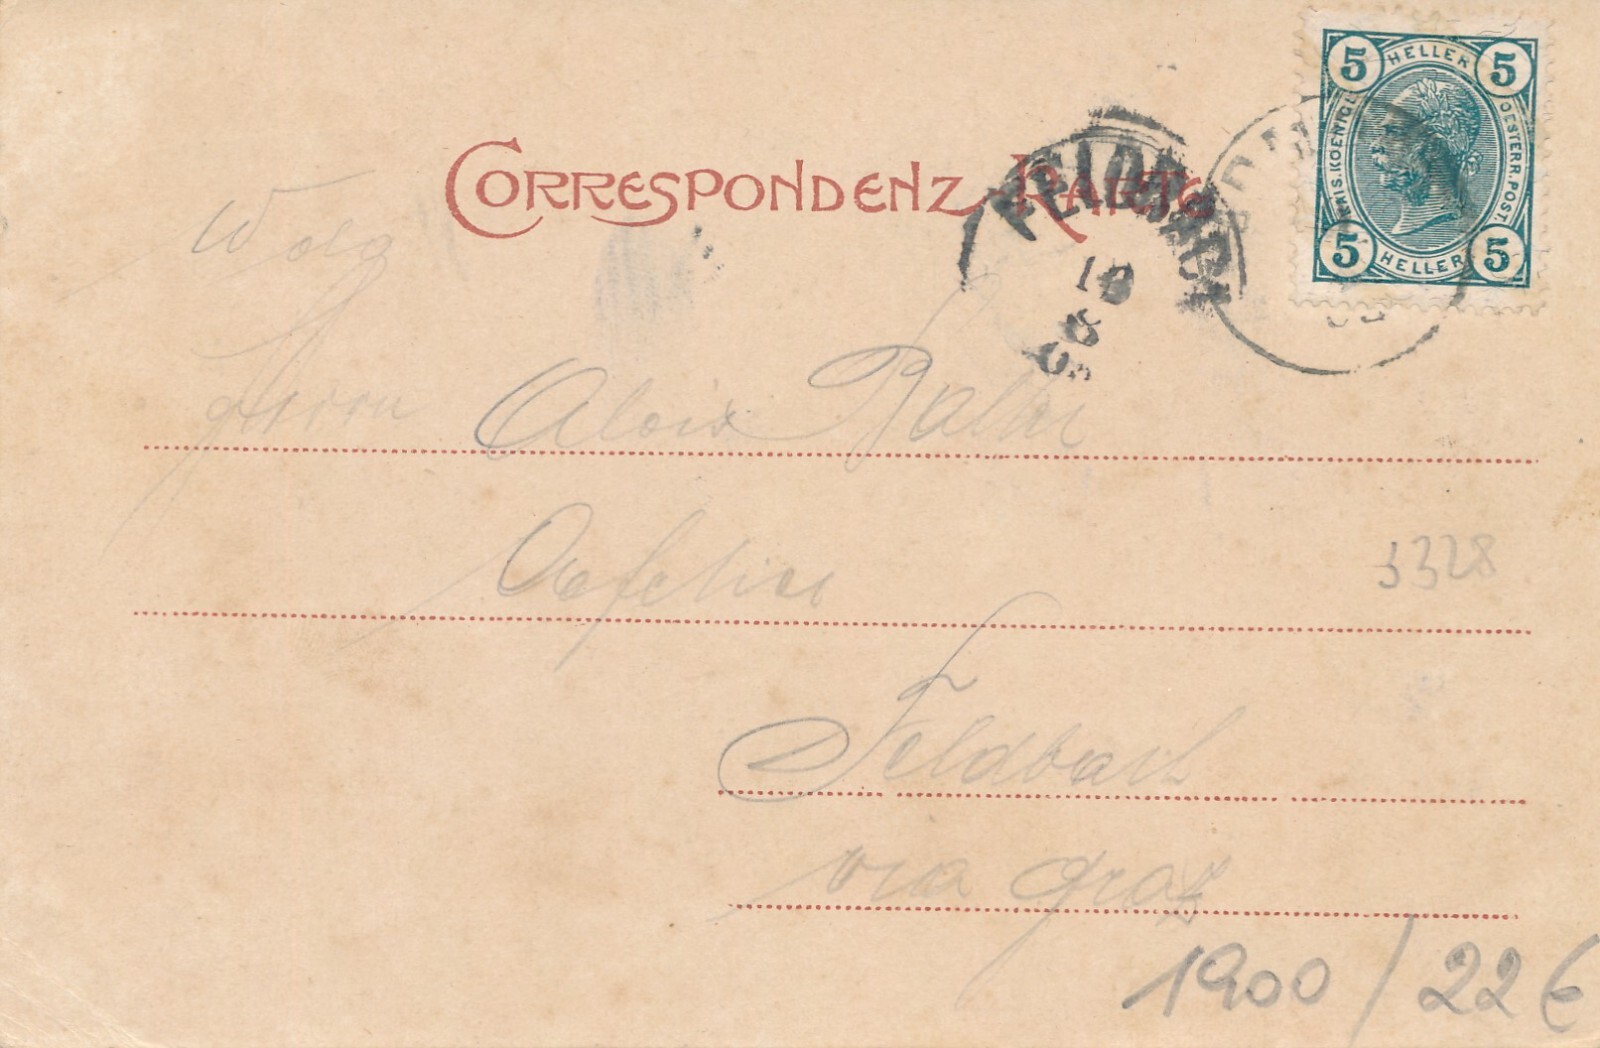 5 HELLER 5
KAIS. KOENIGL. OESTERR. POST.
5 HELLER 5
CORRESPONDENZ-KARTE
FELDBACH
10
8
03
Herrn Alois
Cafetier
3328
Feldbach
via Graz
1900 / 22 €